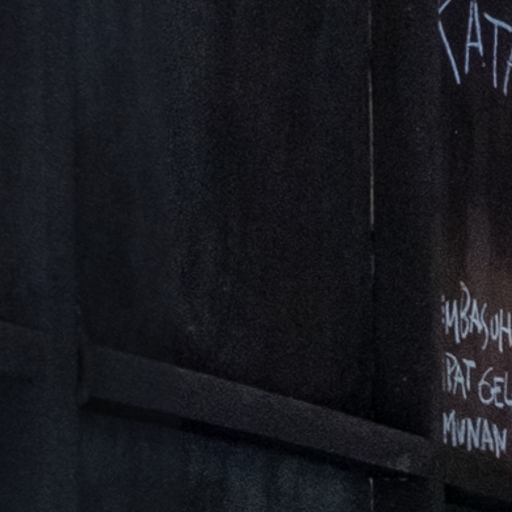 CATA
MBASUH
PAT GEL
MUNAN